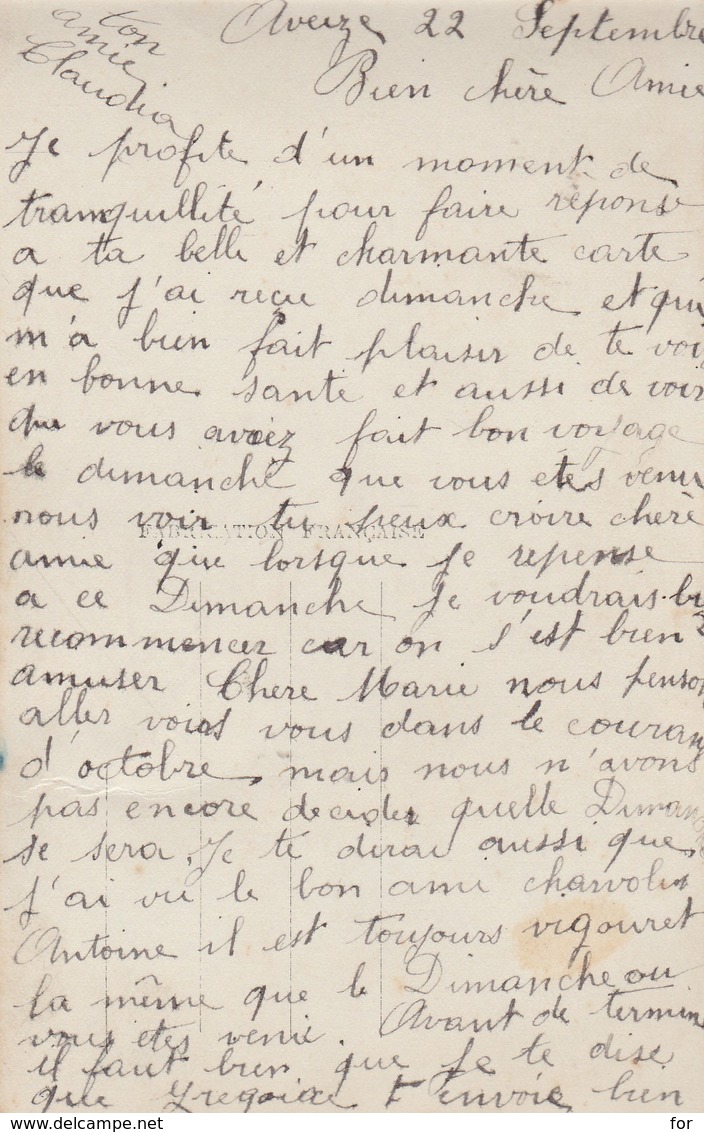 Aveize 22 Septembre
Bien chère Amie
Je profite d'un moment de
tranquillité pour faire réponse
a ta belle et charmante carte
que j'ai reçue dimanche et qui
m'a bien fait plaisir de te voir
en bonne santé et aussi de voir
que vous aviez fait bon voyage
le dimanche que vous etes venu
nous voir tu peux croire chère
amie que lorsque je repense
a ce Dimanche je voudrais bien
recommencer car on s'est bien
amuser Chere Marie nous penson
aller voirs vous dans le couran
d'octobre mais nous n'avons
pas encore decider quelle Diman
se sera. Je te dirai aussi que
j'ai vu le bon ami charvolin
Antoine il est toujours vigouret
la même que le Dimanche ou
vous etes venu. Avant de termin
il faut bien que je te dise
que t'envoie bien
ton
amie
Claudia
FABRICATION FRANÇAISE
for